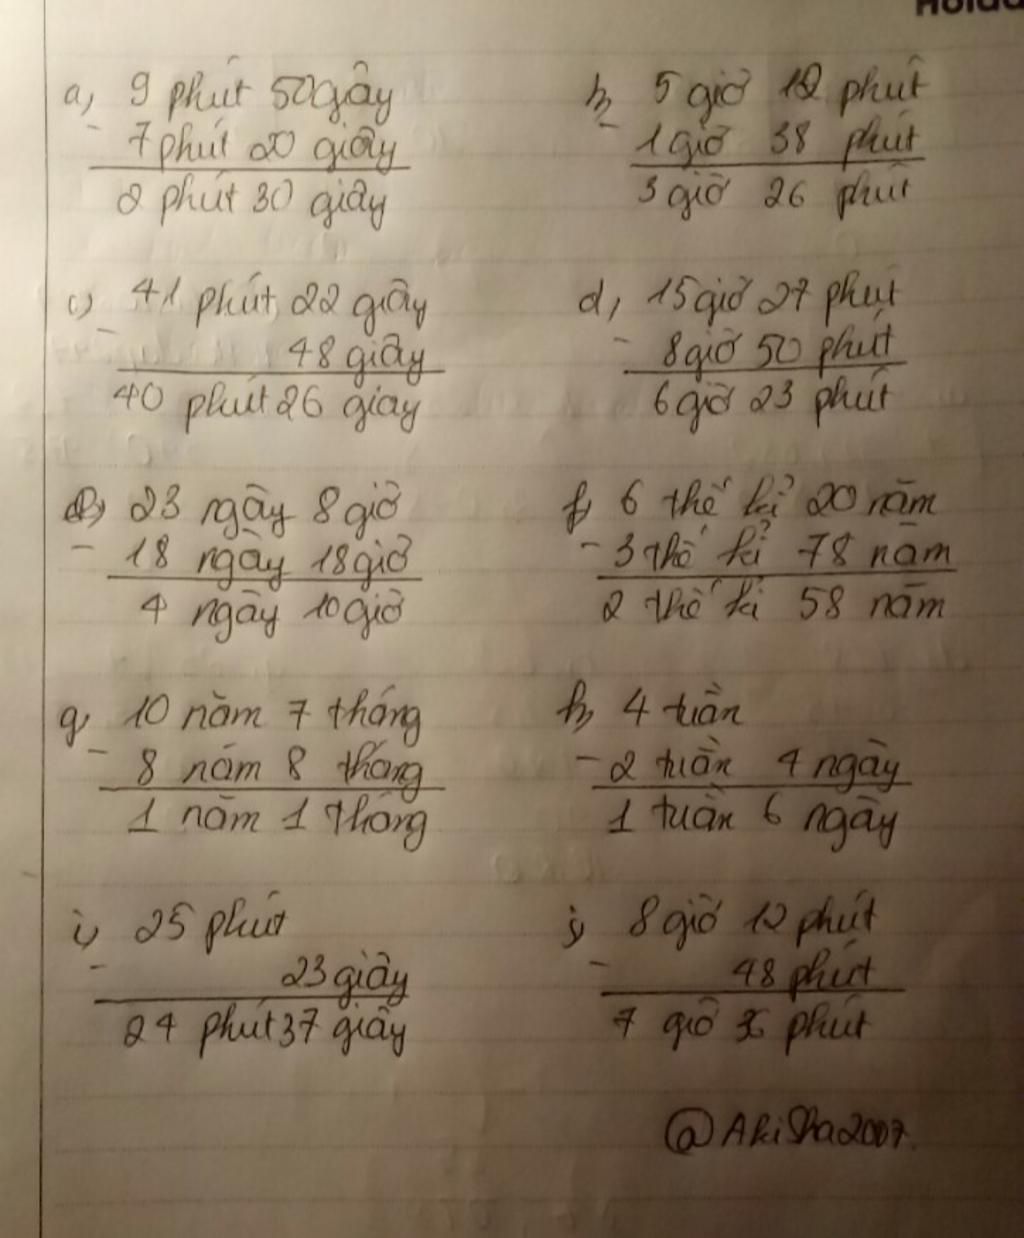 a, 9 phút 50 gây
- 7 phút 20 giây
2 phút 30 giây
b, 5 giờ 12 phút
- 1 giờ 38 phút
3 giờ 26 phút
c) 41 phút 22 giây
- 48 giây
40 phút 26 giây
d, 15 giờ 27 phút
- 8 giờ 50 phút
6 giờ 23 phút
23 ngày 8 giờ
- 18 ngày 18 giờ
4 ngày 10 giờ
f, 6 thế kỉ 20 năm
- 3 thế kỉ 78 năm
2 thế kỉ 58 năm
g, 10 năm 7 tháng
- 8 năm 8 tháng
1 năm 1 tháng
h, 4 tuần
- 2 tuần 4 ngày
1 tuần 6 ngày
i, 25 phút
- 23 giây
24 phút 37 giây
j, 8 giờ 12 phút
- 48 phút
7 giờ 36 phút
@AkiSha2007